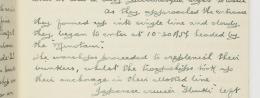 as they approached the entrance
they formed up into single line and slowly
they began to enter at 10-20 A.M headed by
the Minotaur.
The warships proceeded to replenish their
bunkers, whilst the troopships took up
their anchorage in their allotted line
Japanese cruiser "Ibuki" left